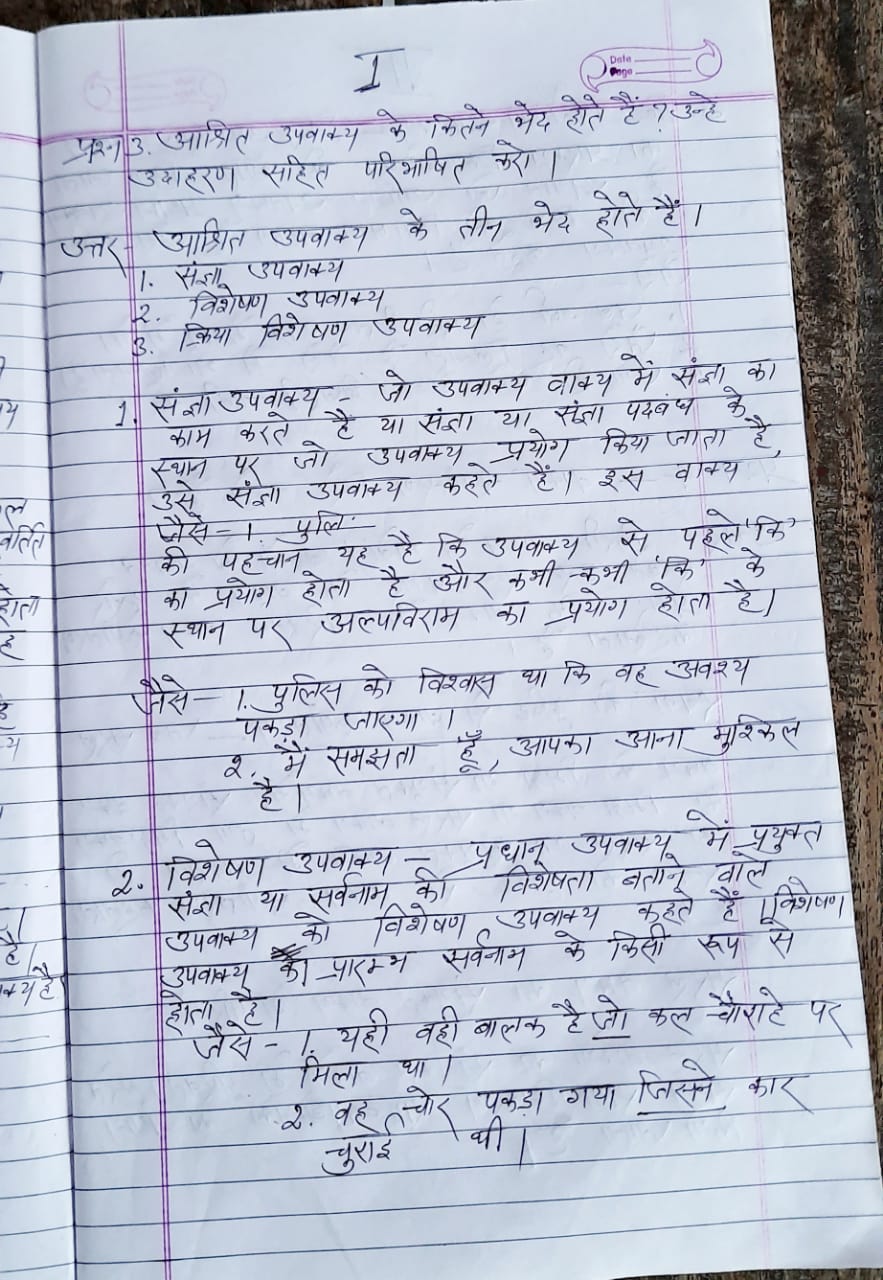 I
Date
Page
प्रश्न 3. आश्रित उपवाक्य के कितने भेद होते हैं ? उन्हे
उदाहरण सहित परिभाषित करो ।
उत्तर- आश्रित उपवाक्य के तीन भेद होते हैं ।
1. संज्ञा उपवाक्य
2. विशेषण उपवाक्य
3. क्रिया विशेषण उपवाक्य
1. संज्ञा उपवाक्य - जो उपवाक्य वाक्य में संज्ञा का
काम करते है या संज्ञा या संज्ञा पदबंध के
स्थान पर जो उपवाक्य प्रयोग किया जाता है,
उसे संज्ञा उपवाक्य कहते हैं। इस वाक्य
जैसे - 1. पुलि
की पहचान यह है कि उपवाक्य से पहले 'कि'
का प्रयोग होता है और कभी-कभी 'कि' के
स्थान पर अल्पविराम का प्रयोग होता है।
जैसे - 1. पुलिस को विश्वास था कि वह अवश्य
पकड़ा जाएगा ।
2. मैं समझता हूँ, आपका आना मुश्किल
है ।
2. विशेषण उपवाक्य - प्रधान उपवाक्य में प्रयुक्त
संज्ञा या सर्वनाम की विशेषता बताने वाले
उपवाक्य को विशेषण उपवाक्य कहते हैं । विशेषण
उपवाक्य का प्रारम्भ सर्वनाम के किसी रूप से
होता है ।
जैसे - 1. यही वही बालक है जो कल चौराहे पर
मिला था ।
2. वह चोर पकड़ा गया जिसने कार
चुराई थी ।
ल
वर्तित
होता
है
है ।
क्य है